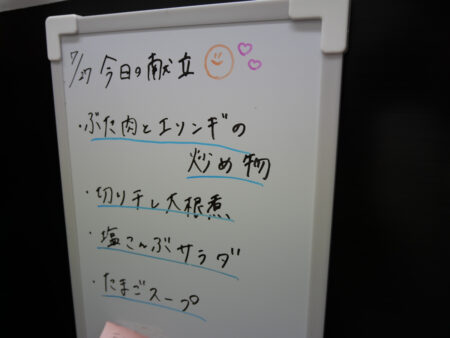 7/27 今日の献立
・ぶた肉とエリンギの
炒め物
・切り干し大根煮
・塩こんぶサラダ
・たまごスープ